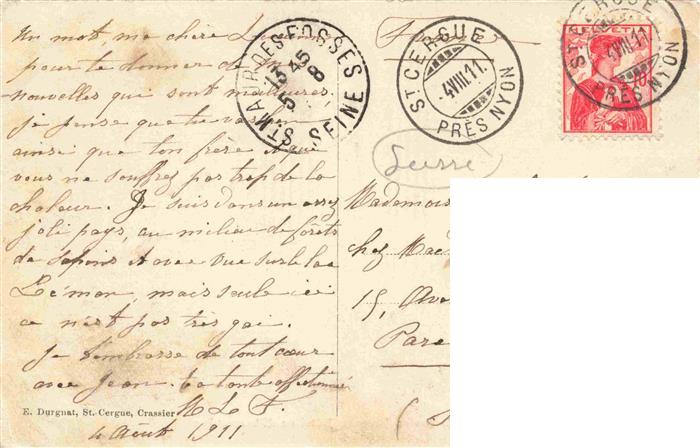 Un mot, ma chère
te donner de
nouvelles qui sont meilleures,
je pense que tu vas
ainsi que ton frère et que
vous ne souffrez pas trop de la
chaleur. Je suis dans un assez
joli pays, au milieu de forêts
de sapins et avec vue sur le lac
Léman, mais seule ici
ce n'est pas très gai.
Je t'embrasse de tout cœur
avec Jean. ta tante affectionnée
M L F.
4 Août 1911
E. Durgnat, St-Cergue, Crassier
ST MAUR DES FOSSES
13 45
5 8
SEINE
ST CERGUE
4 VIII. 11.
PRÈS NYON
HELVETIA
ST CERGUE
4 VIII. 11
PRÈS NYON
Suisse
Mademois
chez
15, Ave
Parc